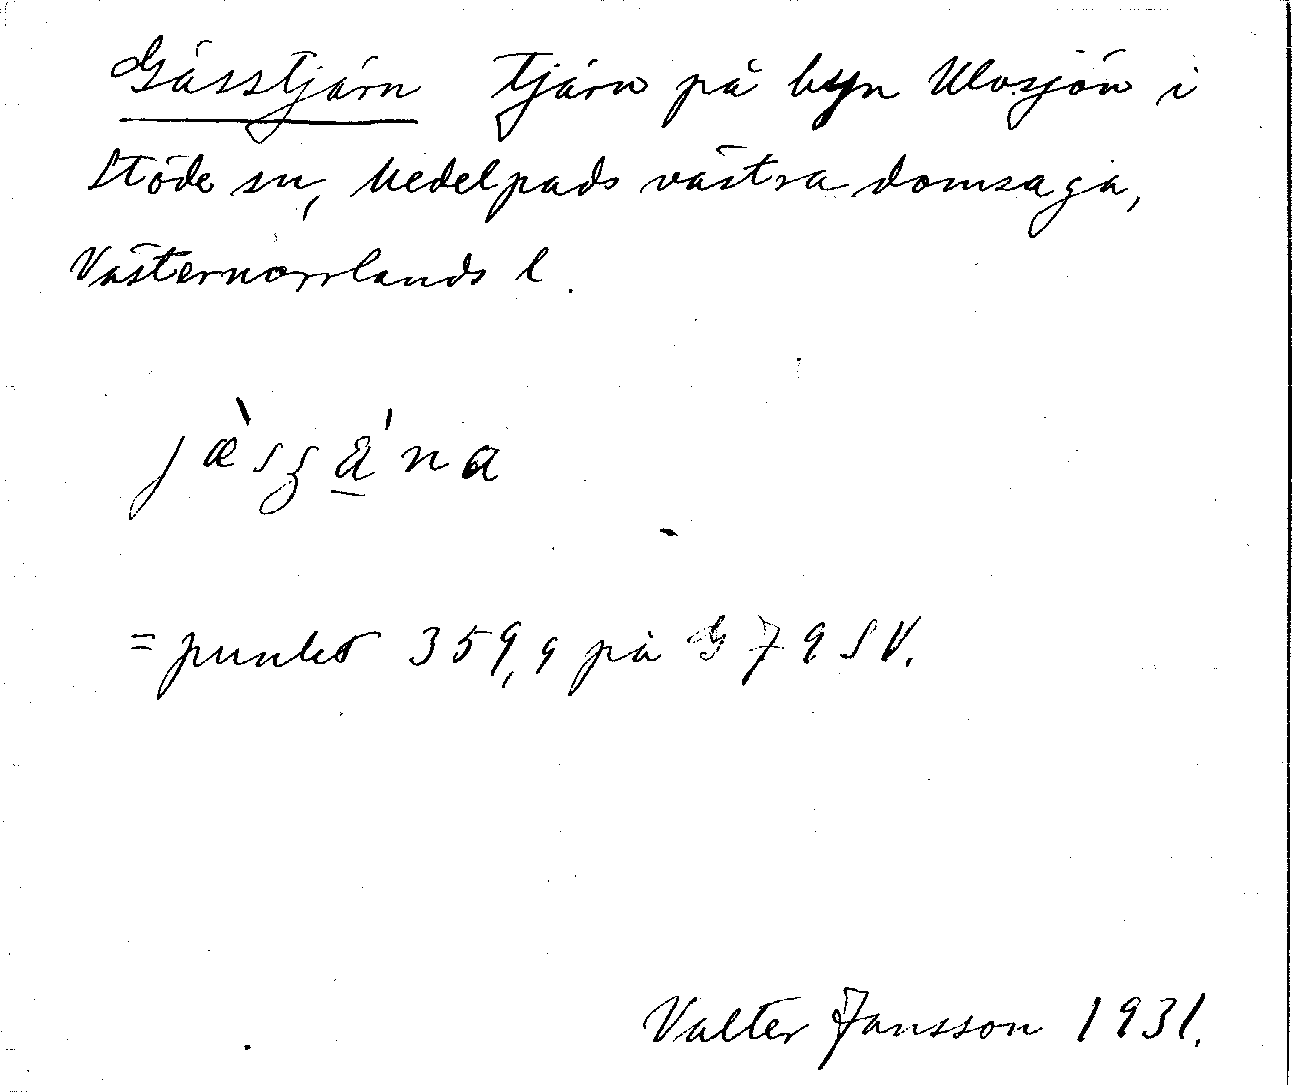 Gässtjärn Tjärn på byn Ulvsjön i
Stöde sn, Medelpads västra domsaga,
Västernorrlands l.
= punkt 359,9 på G 79 SV.
Valter Jansson 1931.